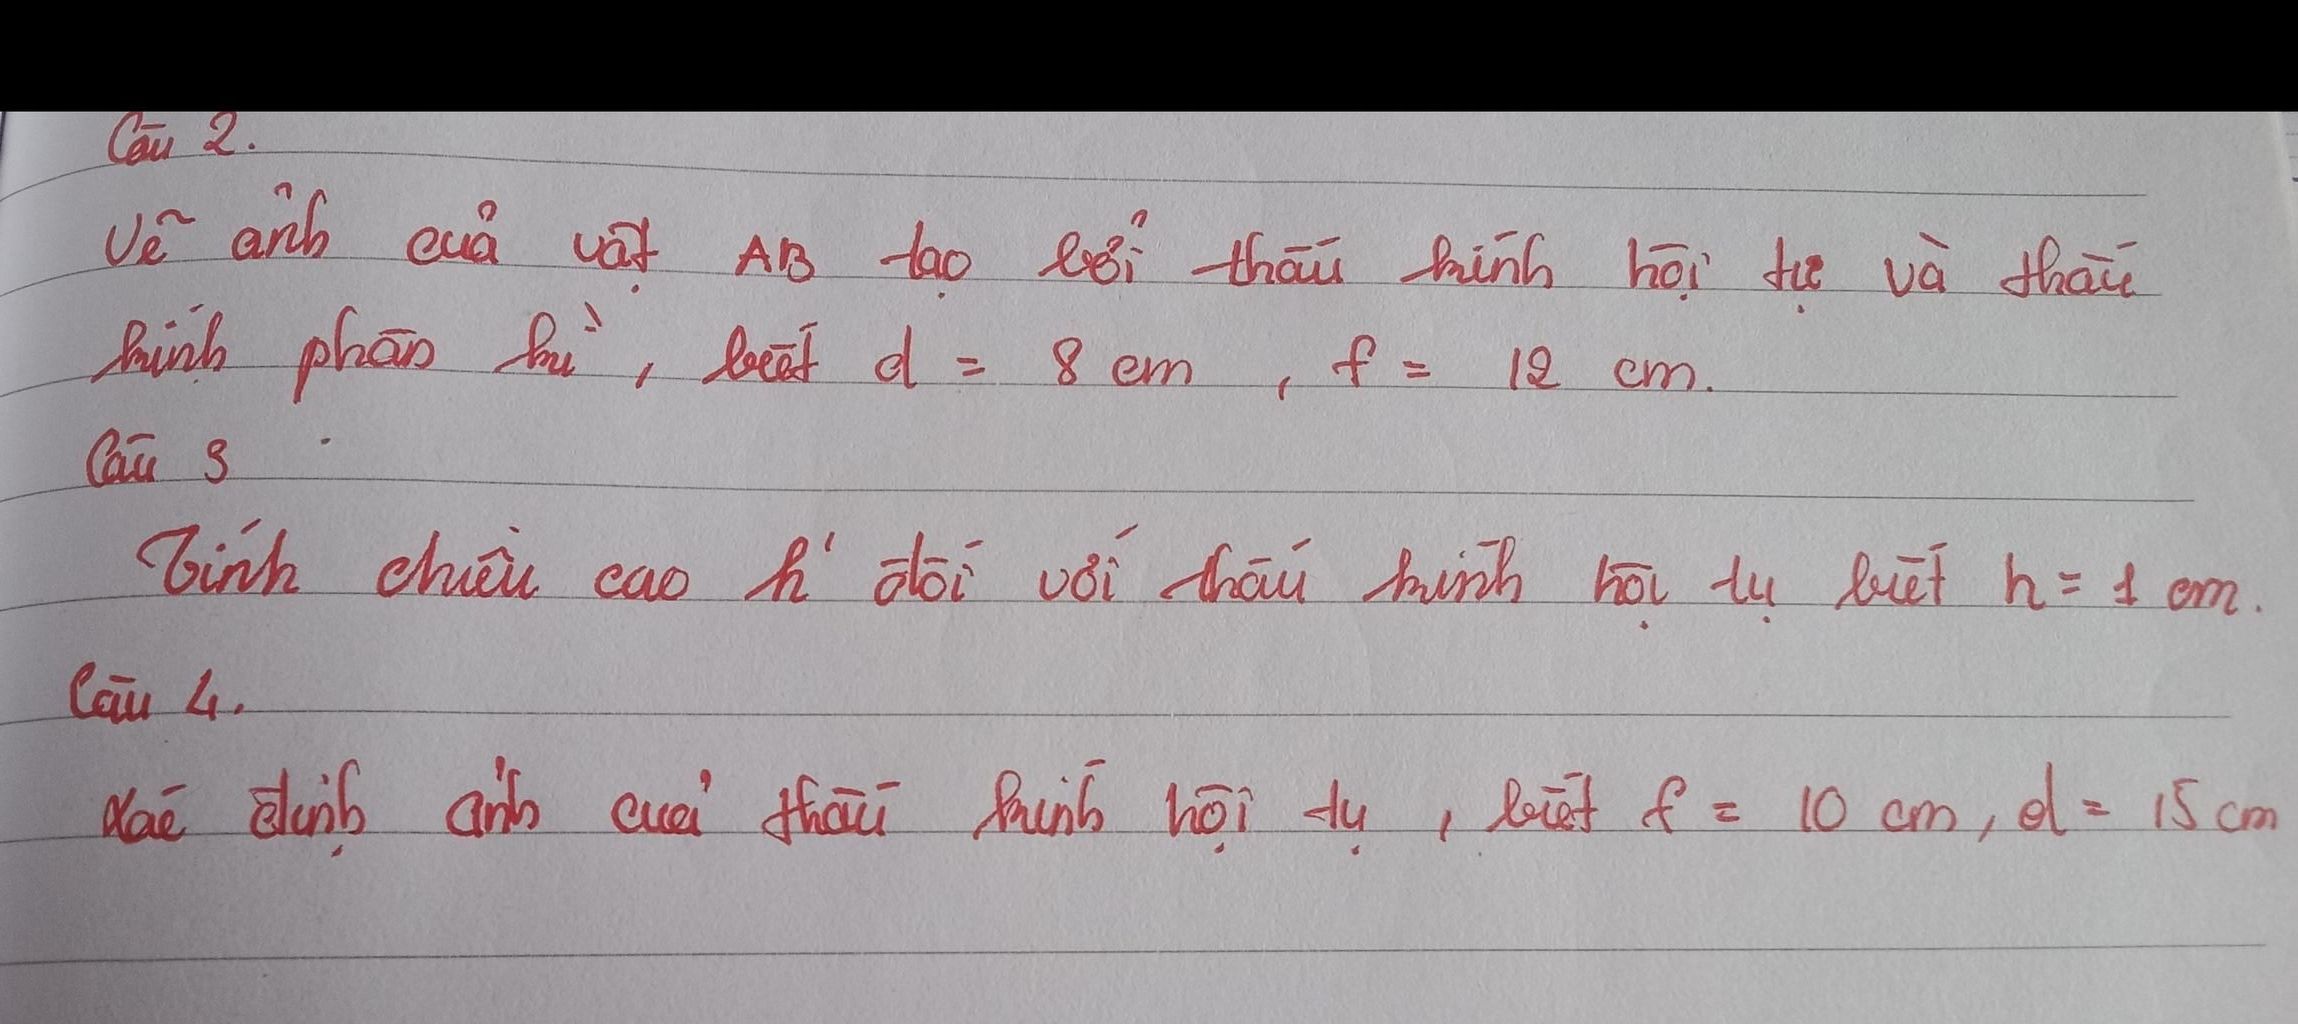 Câu 2.
Vẽ ảnh của vật AB tạo bởi thấu kính hội tụ và thấu
kính phân kì, biết d = 8 cm, f = 12 cm.
Câu 3
Tính chiều cao h' đối với thấu kính hội tụ biết h = 1 cm.
Câu 4.
Xác định ảnh của thấu kính hội tụ, biết f = 10 cm, d = 15 cm